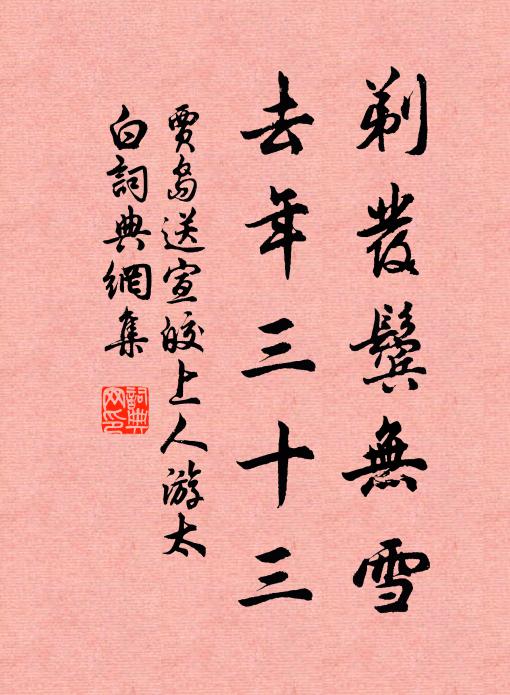 剃發鬢無雪
去年三十三
賈島送宣皎上人游太
白詞典網集
詞典网印